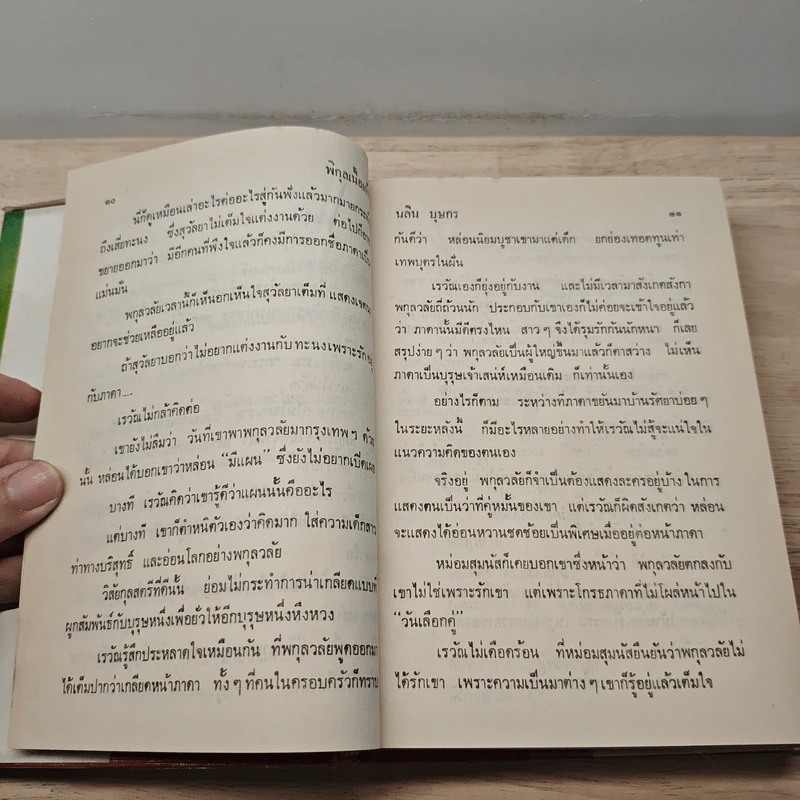 ๑๐
พิกุลเนื้อ
นี่ก็ดูเหมือนเล่าอะไรต่ออะไรสู่กันฟังแล้วมากมาย
ถึงเสี่ยทะนง ซึ่งสุวลัยาไม่เต็มใจแต่งงานด้วย ต่อไปก็
ขยายออกมาว่า มีอีกคนที่พึงใจแล้วก็คงมีการออกชื่อภาดาเป็น
แม่นมั่น
พกุลวลัยเวลานี้ก็เห็นอกเห็นใจสุวลัยาเต็มที่ แสดง
อยากจะช่วยเหลืออยู่แล้ว
ถ้าสุวลัยาบอกว่าไม่อยากแต่งงานกับทะนงเพราะรัก
กับภาดา....
เรวัณไม่กล้าคิดต่อ
เขายังไม่ลืมว่า วันที่เขาพาพกุลวลัยมากรุงเทพฯ ด้วย
นั้น หล่อนได้บอกเขาว่าหล่อน “มีแผน” ซึ่งยังไม่อยากเปิดเผย
บางที เรวัณคิดว่าเขารู้ดีว่าแผนนั้นคืออะไร
แต่บางที เขาก็ตำหนิตัวเองว่าคิดมาก ใส่ความเด็กสาว
ท่าทางบริสุทธิ์ และอ่อนโลกอย่างพกุลวลัย
วิสัยกุลสตรีที่ดีนั้น ย่อมไม่กระทำการน่าเกลียดแบบที่
ผูกสัมพันธ์กับบุรุษหนึ่งเพื่อยั่วให้อีกบุรุษหนึ่งหึงหวง
เรวัณรู้สึกประหลาดใจเหมือนกัน ที่พกุลวลัยพูดออกมา
ได้เต็มปากว่าเกลียดหน้าภาดา ทั้ง ๆ ที่คนในครอบครัวก็ทราบ
นลิน บุษกร ๑๑
กันดีว่า หล่อนนิยมบูชาเขามาแต่เด็ก ยกย่องเทอดทูนเท่า
เทพบุตรในฝัน
เรวัณเองก็ยุ่งอยู่กับงาน และไม่มีเวลามาสังเกตสังกา
พกุลวลัยถี่ถ้วนนัก ประกอบกับเขาเองก็ไม่ค่อยจะเข้าใจอยู่แล้ว
ว่า ภาดานั้นมีดีตรงไหน สาว ๆ จึงได้รุมรักกันนักหนา ก็เลย
สรุปง่าย ๆ ว่า พกุลวลัยเป็นผู้ใหญ่ขึ้นมาแล้วก็ตาสว่าง ไม่เห็น
ภาดาเป็นบุรุษเจ้าเสน่ห์เหมือนเดิม ก็เท่านั้นเอง
อย่างไรก็ตาม ระหว่างที่ภาดาขยันมาบ้านรัศยาบ่อย ๆ
ในระยะหลังนี้ ก็มีอะไรหลายอย่างทำให้เรวัณไม่สู้จะแน่ใจใน
แนวความคิดของตนเอง
จริงอยู่ พกุลวลัยก็จำเป็นต้องแสดงละครอยู่บ้าง ในการ
แสดงตนเป็นว่าที่คู่หมั้นของเขา แต่เรวัณก็ผิดสังเกตว่า หล่อน
จะแสดงได้อ่อนหวานชดช้อยเป็นพิเศษเมื่ออยู่ต่อหน้าภาดา
หม่อมสุมนัสก็เคยบอกเขาซึ่งหน้าว่า พกุลวลัยตกลงกับ
เขาไม่ใช่เพราะรักเขา แต่เพราะโกรธภาดาที่ไม่โผล่หน้าไปใน
“วันเลือกคู่”
เรวัณไม่เดือดร้อน ที่หม่อมสุมนัสยืนยันว่าพกุลวลัยไม่
ได้รักเขา เพราะความเป็นมาต่าง ๆ เขาก็รู้อยู่แล้วเต็มใจ